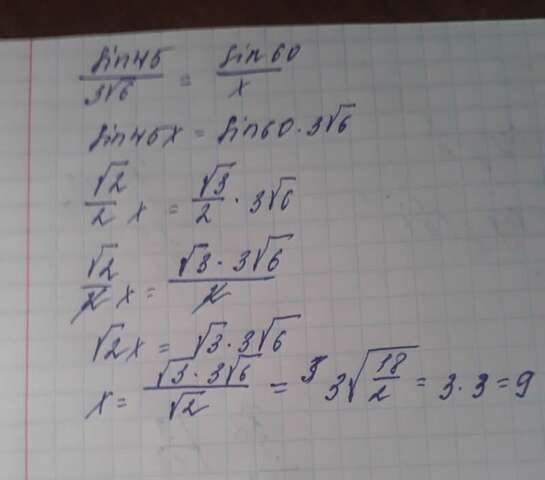 sin45/3√6 = sin60/x
sin45x = sin60 · 3√6
√2/2 x = √3/2 · 3√6
√2/2 x = √3 · 3√6/2
√2x = √3 · 3√6
x = √3 · 3√6/√2 = 3√18/2 = 3 · 3 = 9